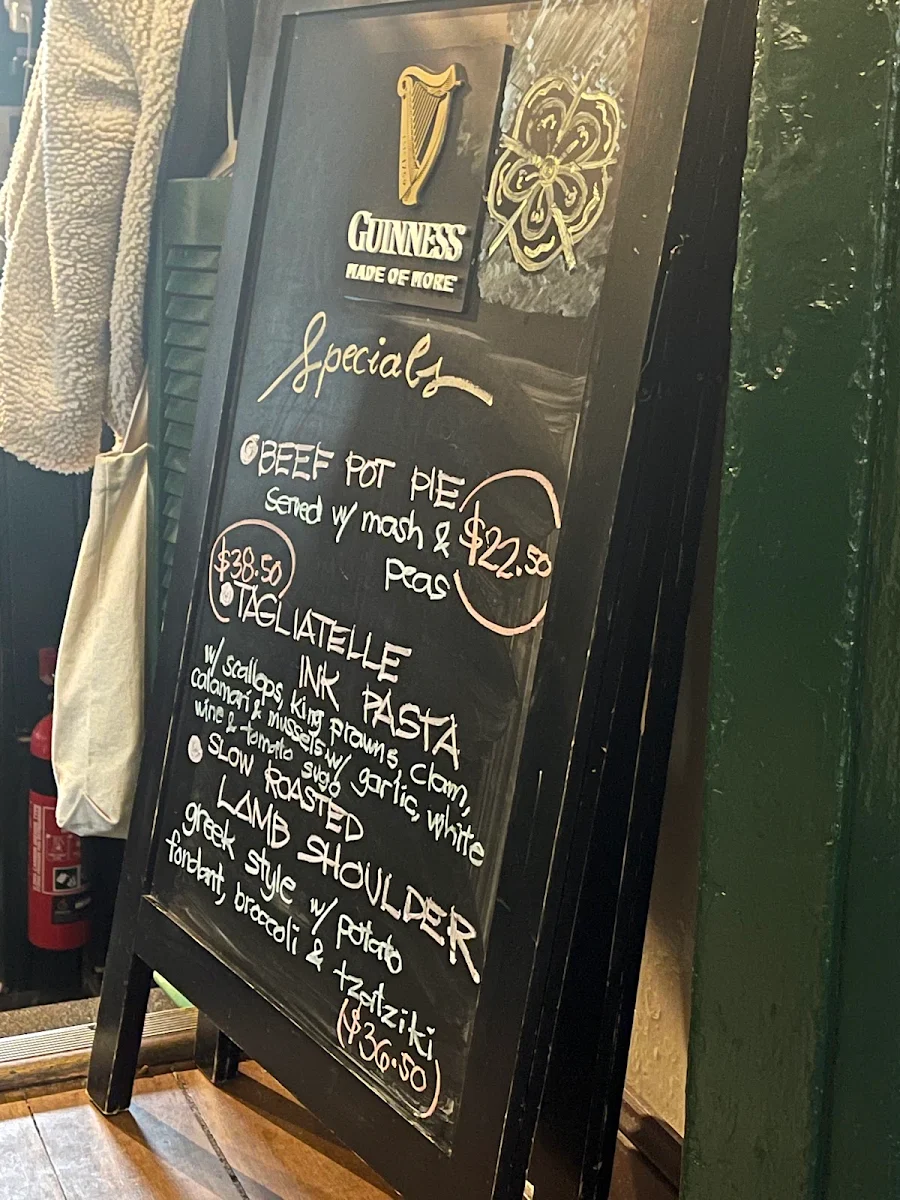 GUINNESS
MADE OF MORE
Specials
BEEF POT PIE
served w/ mash &
peas
$22.50
$38.50
TAGLIATELLE
INK PASTA
w/ scallops, king prawns, clam,
calamari & mussels w/ garlic, white
wine & tomato sugo
SLOW ROASTED
LAMB SHOULDER
greek style w/ potato
fondant, broccoli & tzatziki
($36.50)